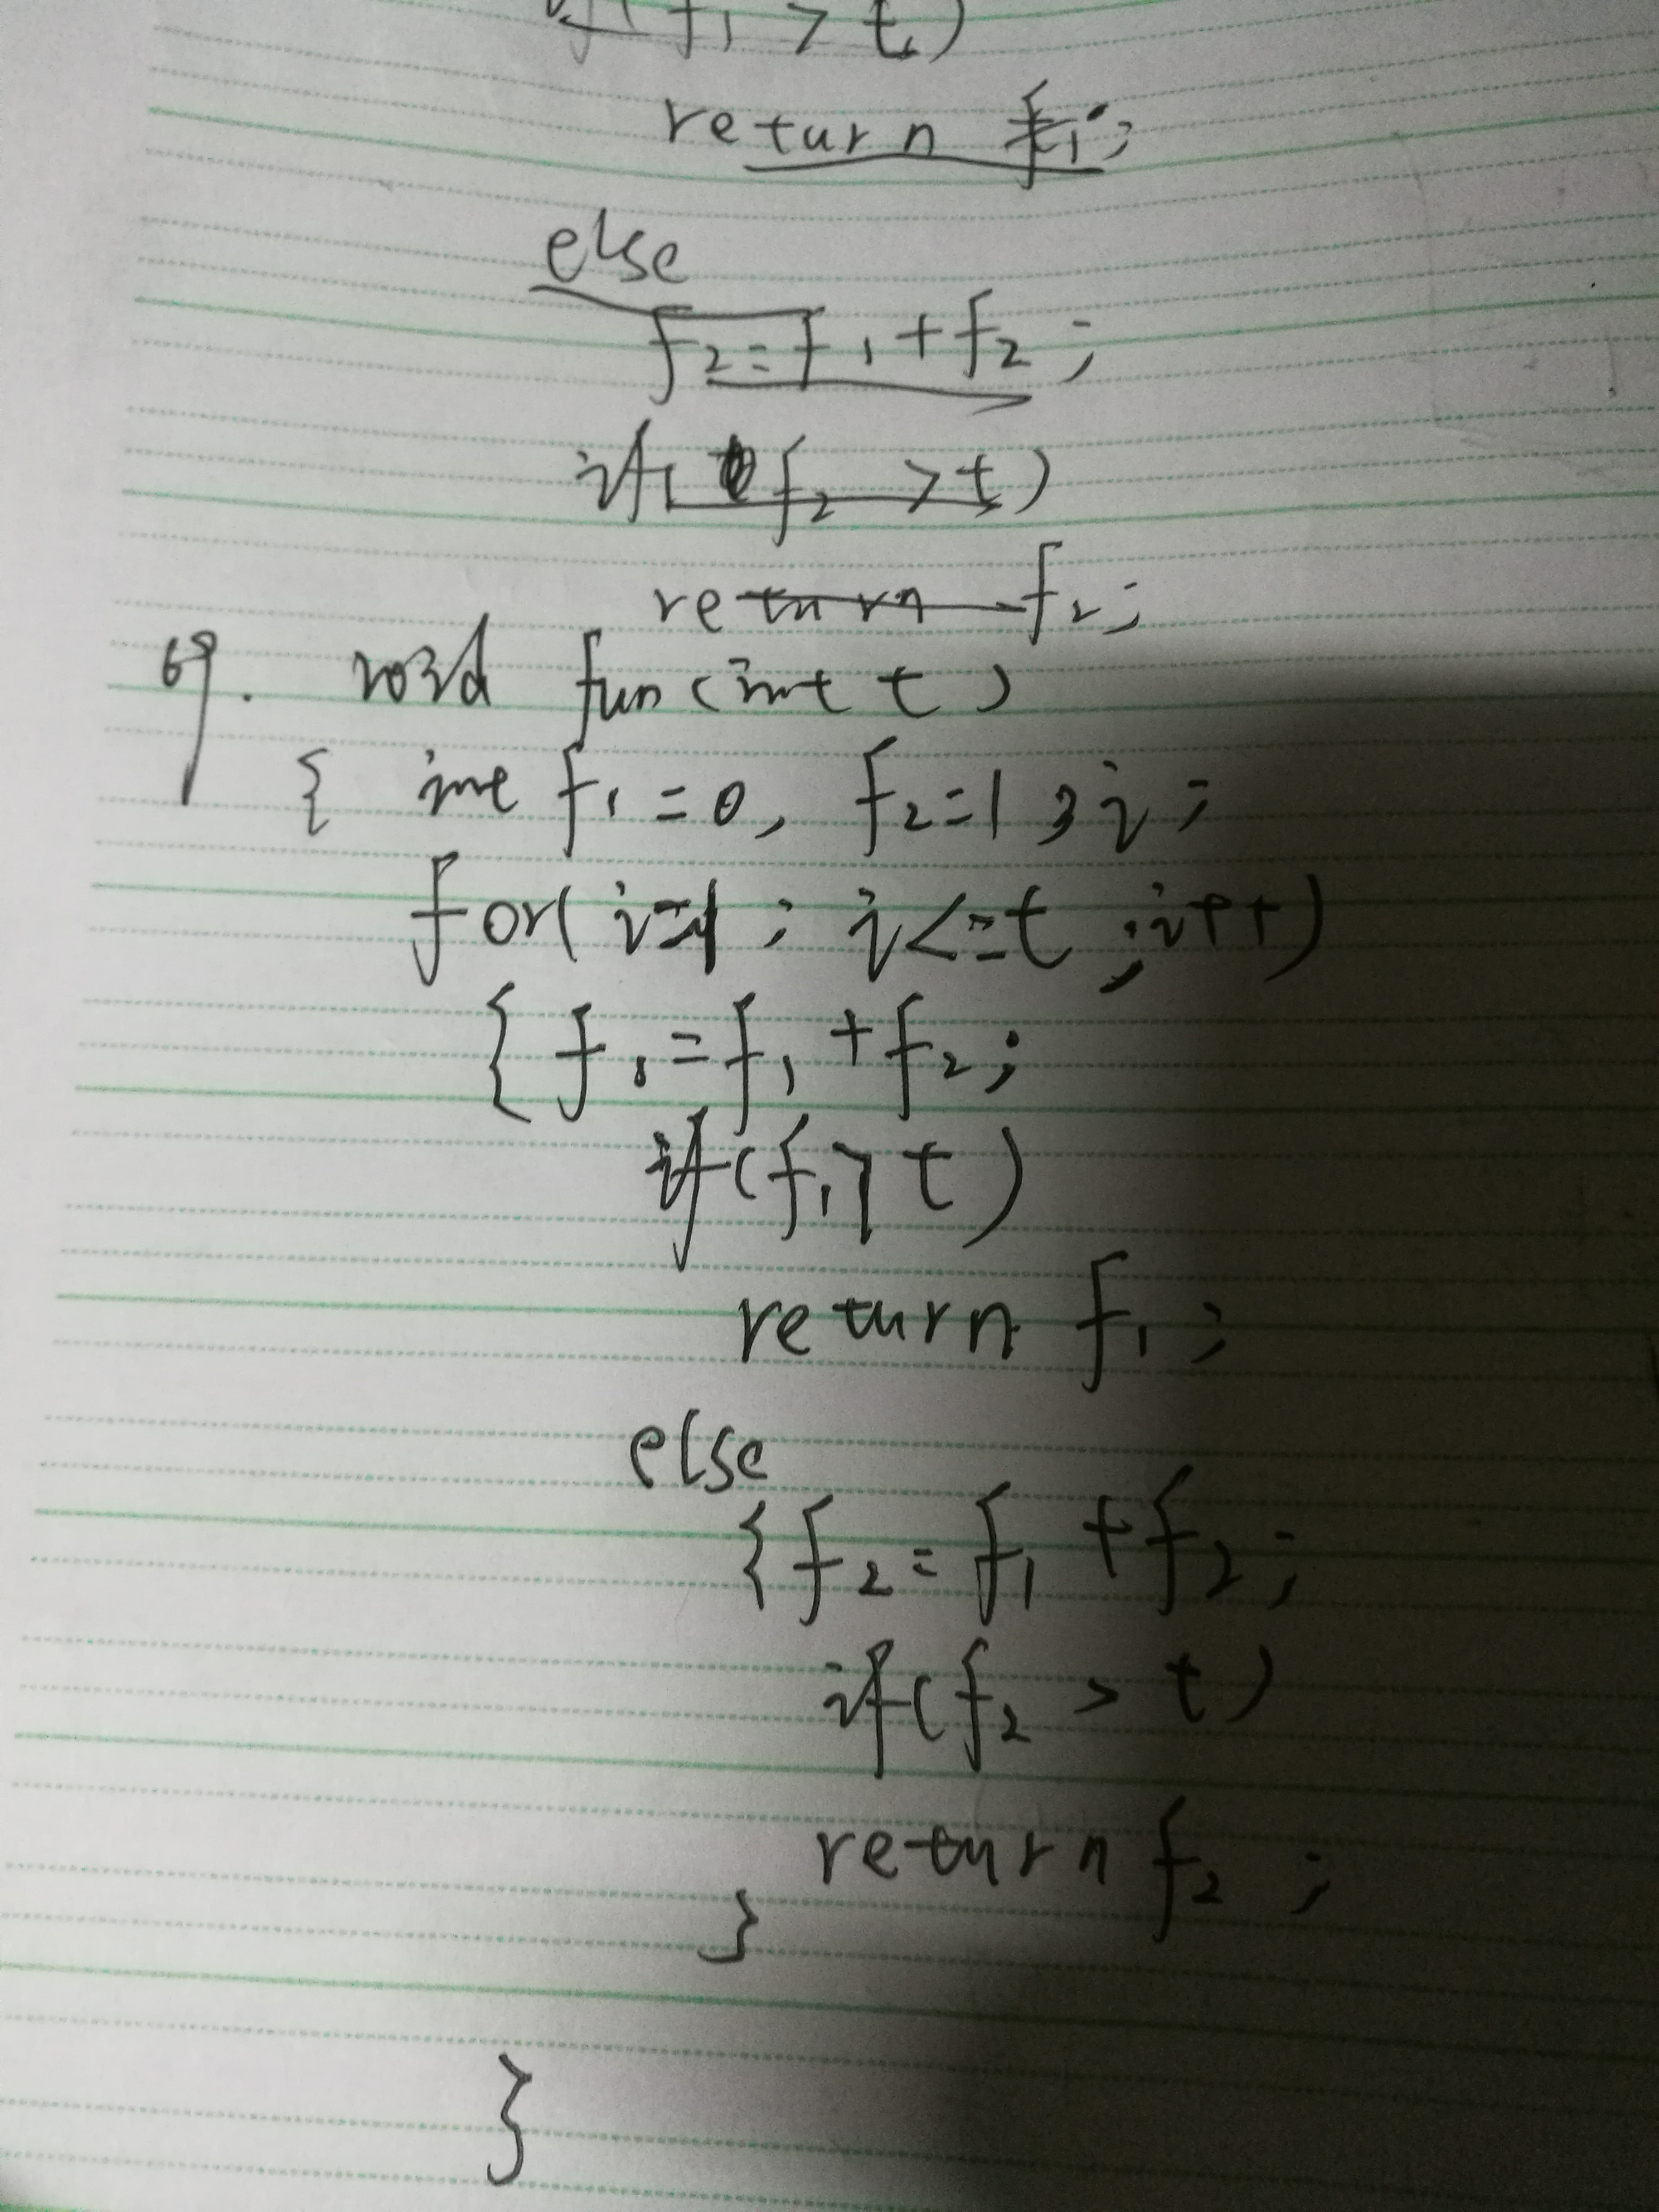 if(f1>t)
return f1;
else
f2=f1+f2;
if(f2>t)
return f2;
69. void fun(int t)
{ int f1=0, f2=1,i;
for(i=1; i<=t;i++)
{f1=f1+f2;
if(f1>t)
return f1;
else
{f2=f1+f2;
if(f2>t)
return f2;
}
}